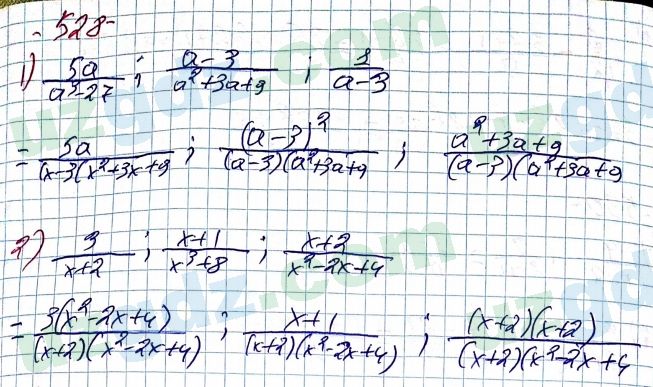 528-
1) 5a/(a³-27) ; (a-3)/(a²+3a+9) ; 1/(a-3)
= 5a/(x-3(x²+3x+9 ; (a-3)²/(a-3)(a²+3a+9 ; a²+3a+9/(a-3)(a²+3a+9
2) 3/(x+2) ; (x+1)/(x³+8) ; (x+2)/(x²-2x+4)
= 3(x²-2x+4)/(x+2)(x²-2x+4) ; x+1/(x+2)(x²-2x+4) ; (x+2)(x+2)/(x+2)(x²-2x+4